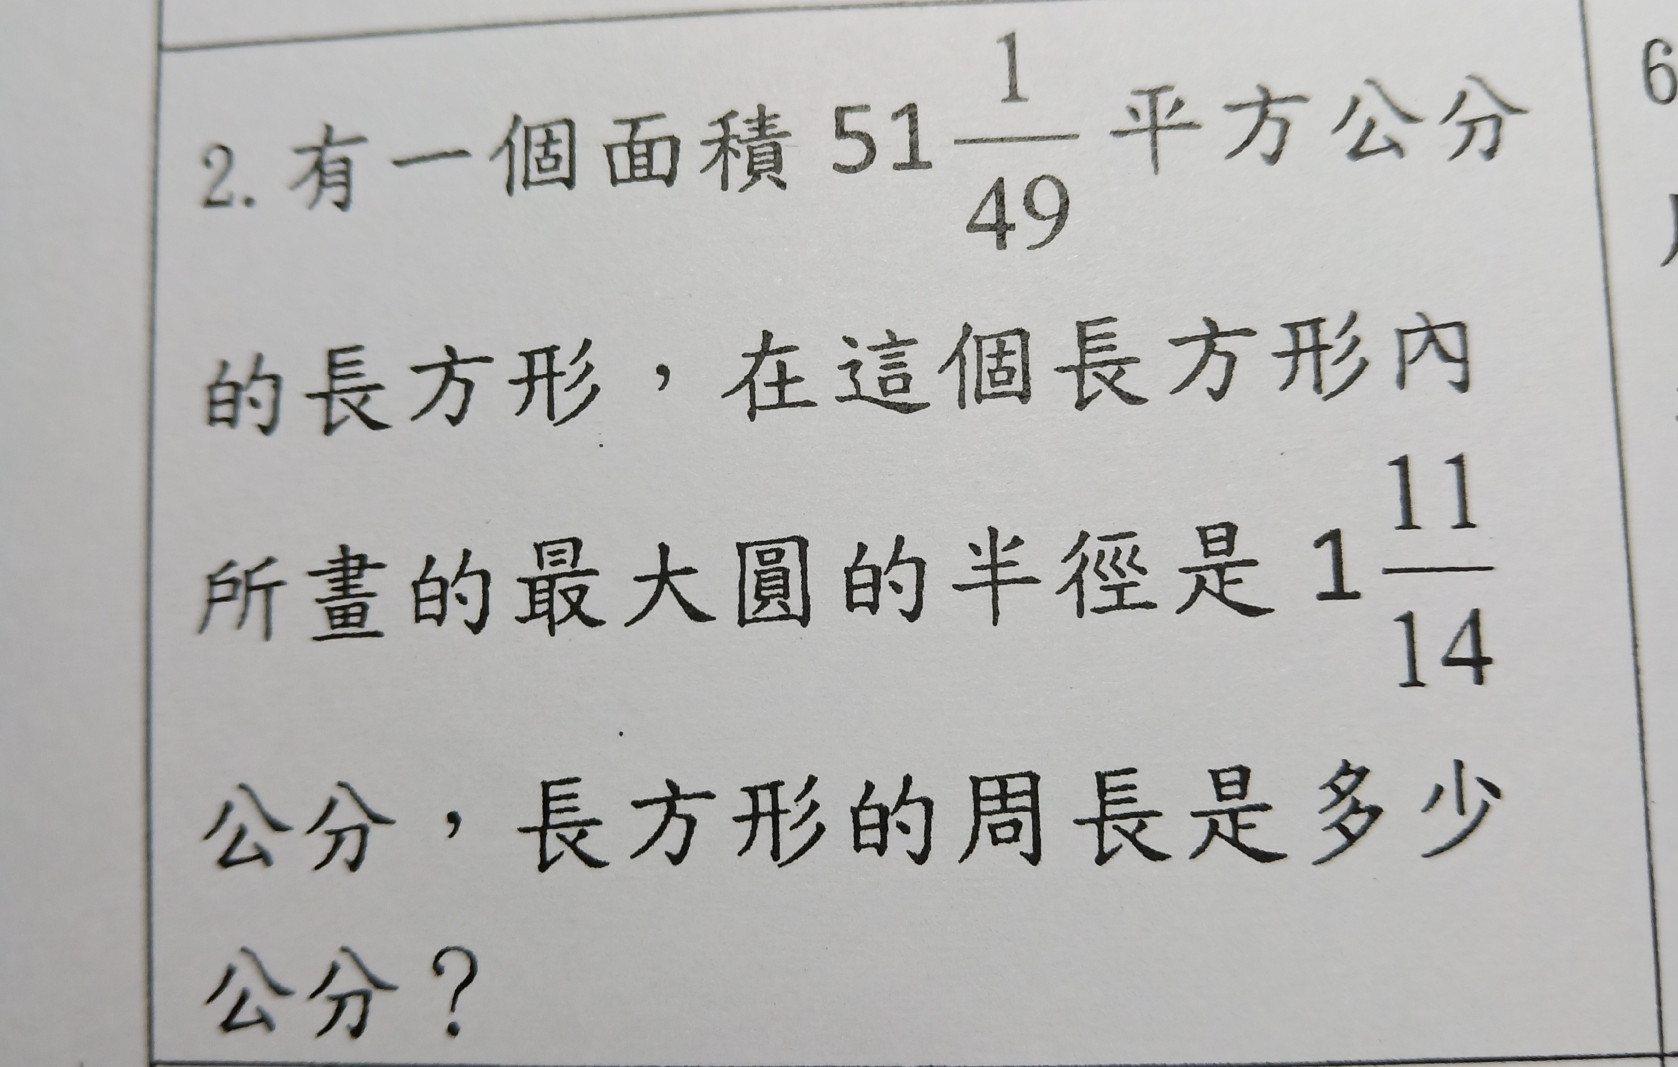 2. 有一個面積 51 1/49 平方公分
的長方形，在這個長方形內
所畫的最大圓的半徑是 1 11/14
公分，長方形的周長是多少
公分？
6